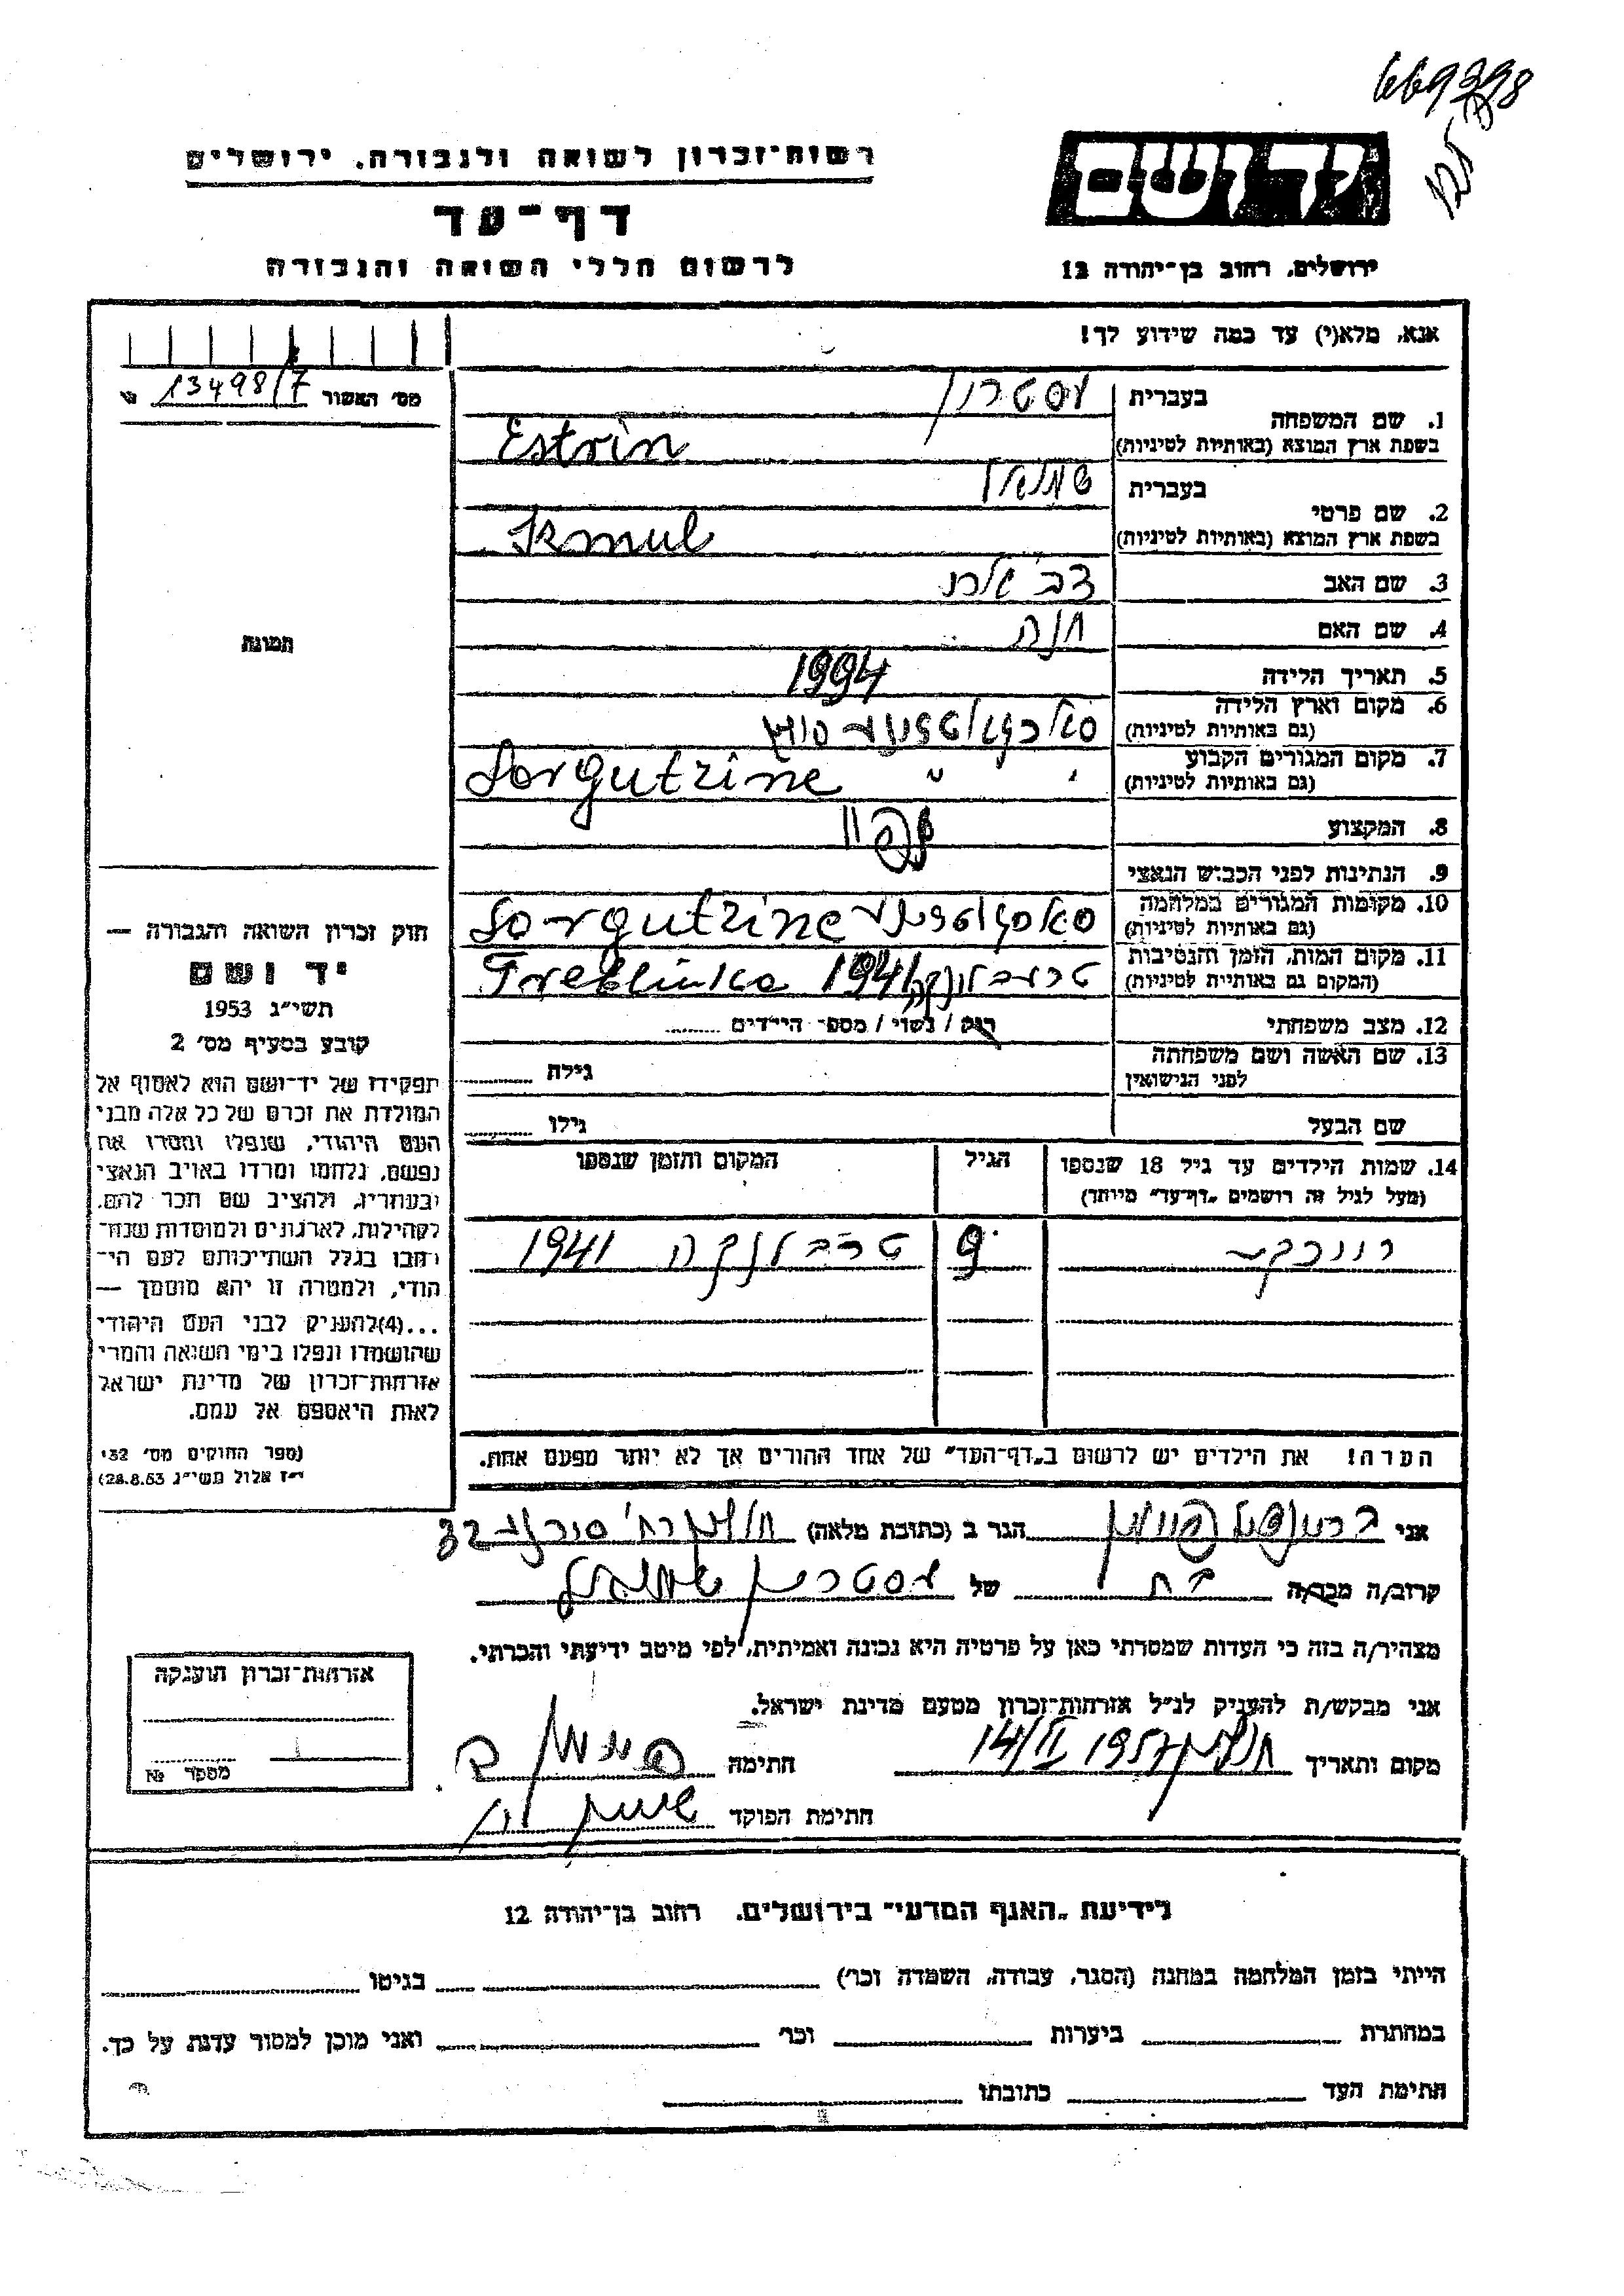 669398
רשות־זכרון לשואה ולגבורה. ירושלים
יד ושם
דף־עד
לרשום חללי השואה והגבורה
ירושלים, רחוב בן־יהודה 12
אנא, מלא(י) עד כמה שידוע לך!
מס' האשור 13498/7
בעברית
1. שם המשפחה
בשפת ארץ המוצא (באותיות לטיניות)
עסטרין
Estrin
בעברית
2. שם פרטי
בשפת ארץ המוצא (באותיות לטיניות)
שמואל
3. שם האב
4. שם האם חנה
5. תאריך הלידה
6. מקום וארץ הלידה
(גם באותיות לטיניות)
7. מקום המגורים הקבוע
(גם באותיות לטיניות)
Sorgutzine " "
8. המקצוע
9. הנתינות לפני הכבוש הנאצי
10. מקומות המגורים במלחמה
(גם באותיות לטיניות)
Sorgutzine
11. מקום המות, הזמן והנסיבות
(המקום גם באותיות לטיניות)
טרבלינקה 1941 Treblinka
12. מצב משפחתי רווק / נשוי / מספר הילדים
13. שם האשה ושם משפחתה
לפני הנישואין
גילה
שם הבעל גילו
14. שמות הילדים עד גיל 18 שנספו
(מעל לגיל זה רושמים „דף־עד" מיוחד)
הגיל
המקום והזמן שנספו
9 טרבלינקה 1941
הערה! את הילדים יש לרשום ב„דף־העד" של אחד ההורים אך לא יותר מפעם אחת.
תמונה
חוק זכרון השואה והגבורה —
יד ושם
תשי"ג 1953
קובע בסעיף מס' 2
תפקידו של יד־ושם הוא לאסוף אל
המולדת את זכרם של כל אלה מבני
העם היהודי, שנפלו ומסרו את
נפשם, נלחמו ומרדו באויב הנאצי
ובעוזריו, ולהציב שם וזכר להם,
לקהילות, לארגונים ולמוסדות שנח־
רבו בגלל השתייכותם לעם הי־
הודי, ולמטרה זו יהא מוסמך —
...(4)להעניק לבני העם היהודי
שהושמדו ונפלו בימי השואה והמרי
אזרחות־זכרון של מדינת ישראל
לאות היאספם אל עמם.
(ספר החוקים מס' 132
י"ז אלול תשי"ג 28.8.53)
אני הגר ב (כתובת מלאה) 32
קרוב/ה מכר/ה בת של עסטרין שמואל
מצהיר/ה בזה כי העדות שמסרתי כאן על פרטיה היא נכונה ואמיתית, לפי מיטב ידיעתי והכרתי.
אני מבקש/ת להעניק לנ"ל אזרחות־זכרון מטעם מדינת ישראל.
מקום ותאריך 14/II 1957 חתימה
חתימת הפוקד
אזרחות־זכרון הוענקה
מספר №
לידיעת „האגף המדעי" בירושלים. רחוב בן־יהודה 12
הייתי בזמן המלחמה במחנה (הסגר, עבודה, השמדה וכר') בגיטו
במחתרת ביערות וכר' ואני מוכן למסור עדות על כך.
חתימת העד כתובתו